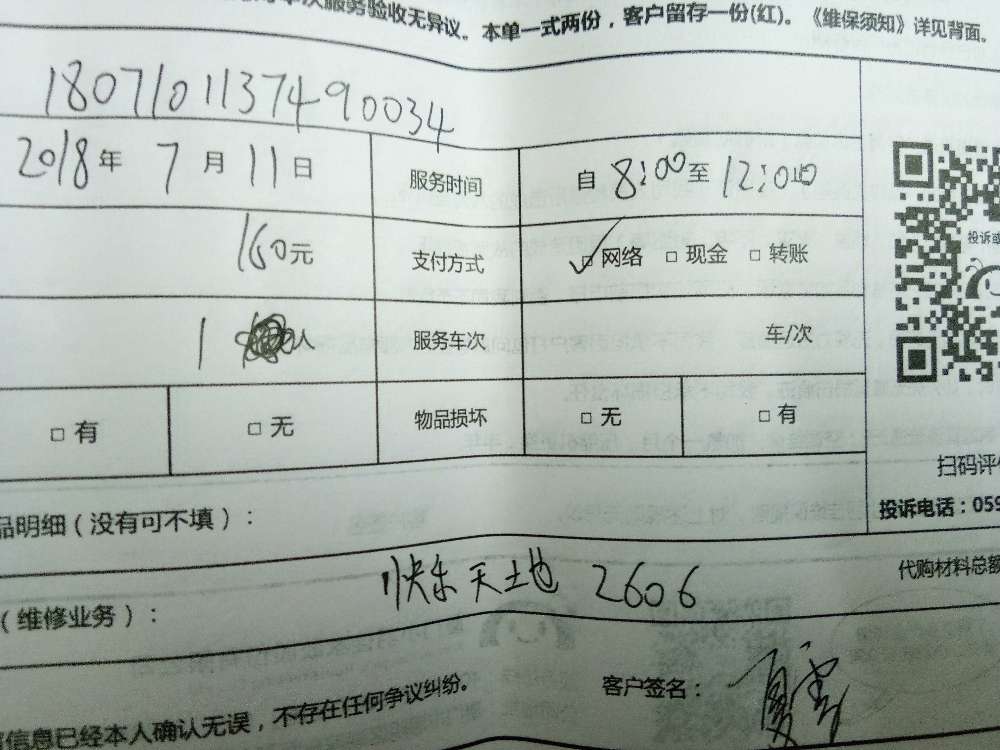 次服务验收无异议。本单一式两份，客户留存一份(红)。《维保须知》详见背面。
1807101137490034
2018年 7月 11日 服务时间 自 8:00 至 12:00止
160元 支付方式 ☑ 网络 □ 现金 □ 转账
投诉或
1 人 服务车次 车/次
□ 有 □ 无 物品损坏 □ 无 □ 有
扫码评价
品明细（没有可不填）： 投诉电话：059
快乐天地 2606 代购材料总额
（维修业务）：
客户签名：夏雪
信息已经本人确认无误，不存在任何争议纠纷。